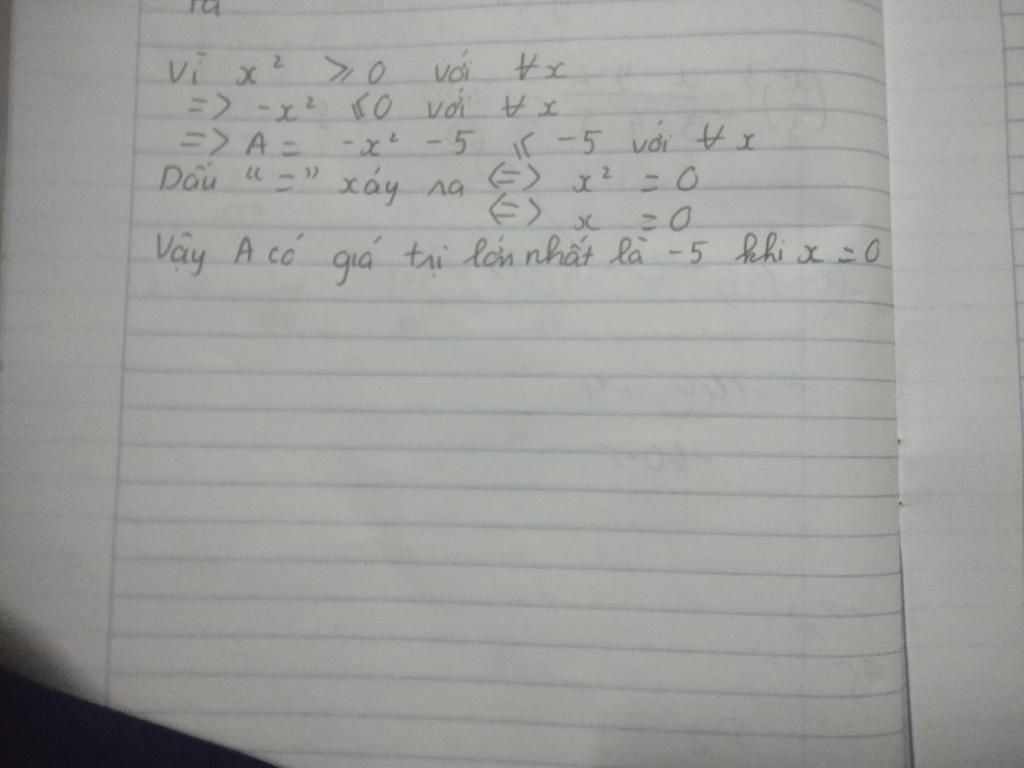 Vì x² ⩾ 0 với ∀x
=> -x² ⩽ 0 với ∀x
=> A = -x² - 5 ⩽ -5 với ∀x
Dấu "=" xảy ra <=> x² = 0
<=> x = 0
Vậy A có giá trị lớn nhất là -5 khi x = 0